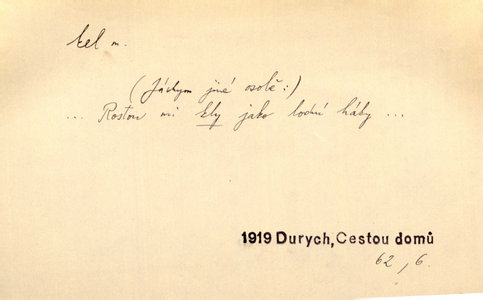 kel m.
(Jáchym jiné osobě:)
... Rostou mi kly jako lodní háky ...
1919 Durych, Cestou domů
62, 6.